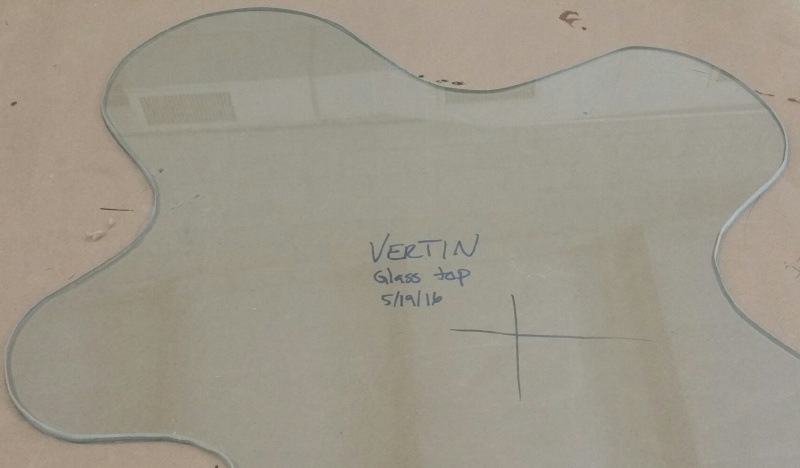 VERTIN
Glass top
5/19/16